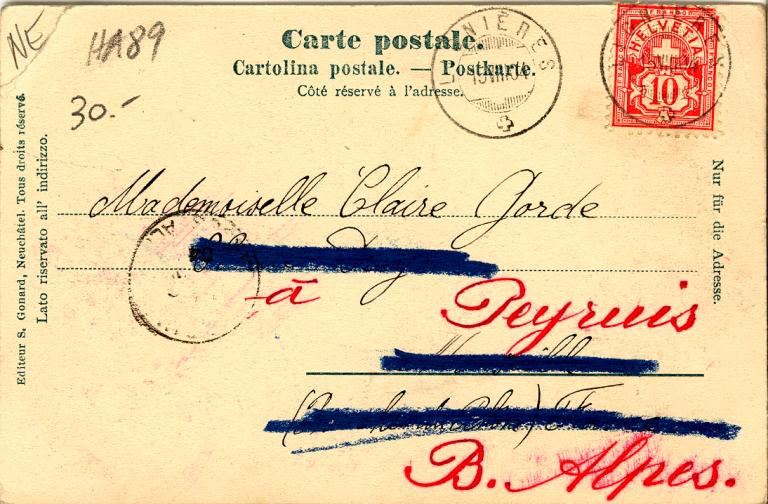 NE
HA89
30.-
Carte postale.
Cartolina postale. — Postkarte.
Côté réservé à l'adresse.
HELVETIA
10
Editeur S. Gonard, Neuchâtel. Tous droits réservés.
Lato riservato all' indirizzo.
Nur für die Adresse.
Mademoiselle Claire Gorde
à Peyruis
B. Alpes.